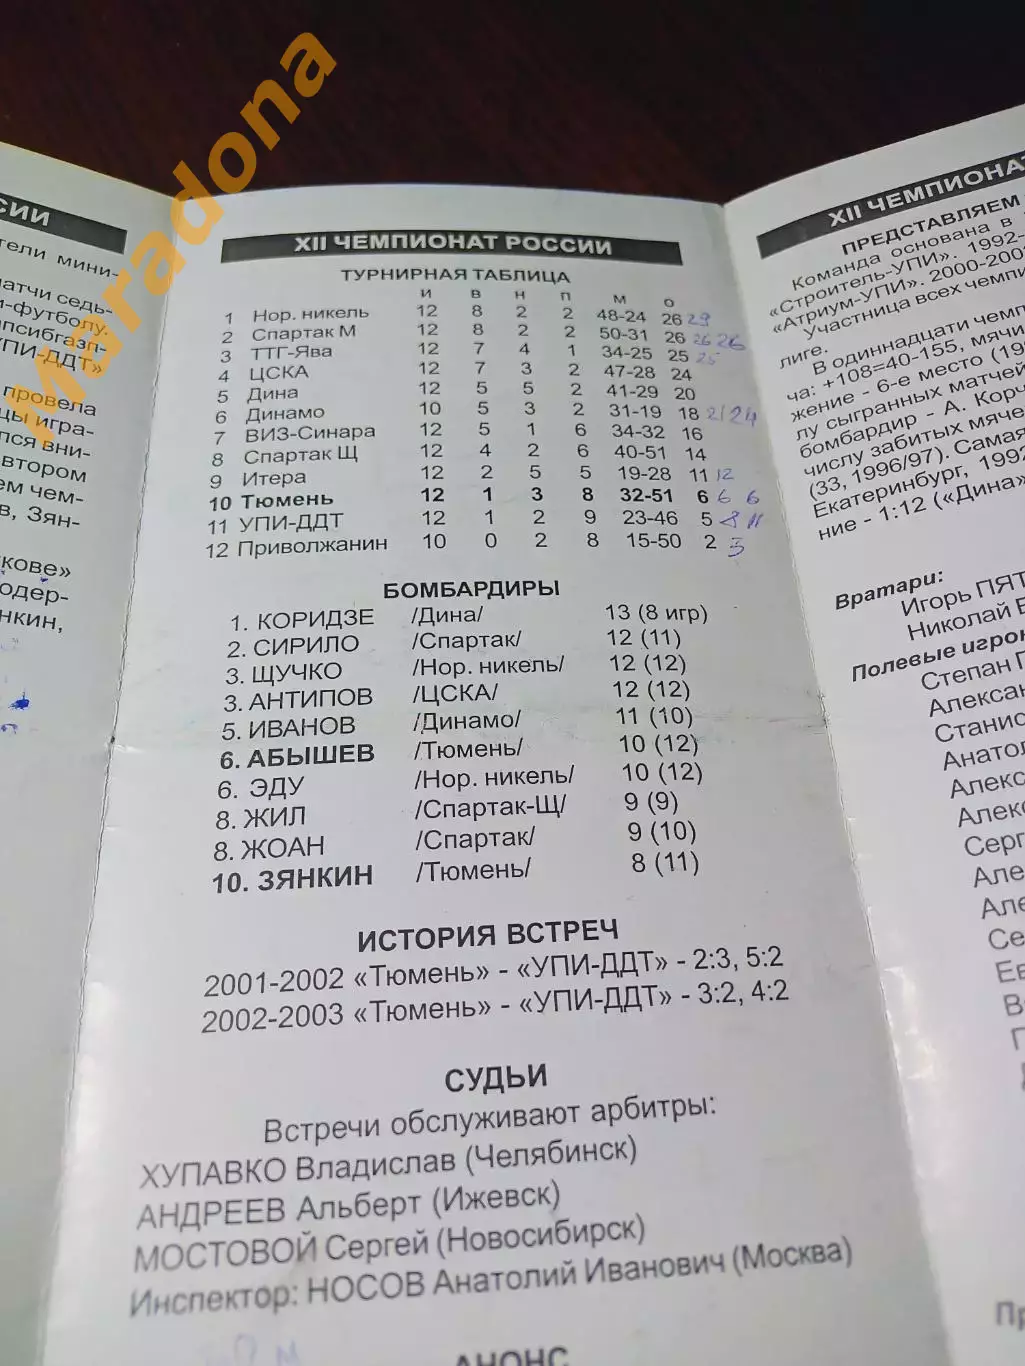 Maradona
СИИ
тели мини-
атчи седь-
и-футболу.
псибгазп-
УПИ-ДДТ»
провела
цы игра-
лся вни-
втором
ем чем-
в, Зян-
кове»
одер-
нкин,
XII ЧЕМПИОНАТ РОССИИ
ТУРНИРНАЯ ТАБЛИЦА
И В Н П М О
1 Нор. никель 12 8 2 2 48-24 26 29
2 Спартак М 12 8 2 2 50-31 26 26 26
3 ТТГ-Ява 12 7 4 1 34-25 25 25
4 ЦСКА 12 7 3 2 47-28 24
5 Дина 12 5 5 2 41-29 20
6 Динамо 10 5 3 2 31-19 18 21 24
7 ВИЗ-Синара 12 5 1 6 34-32 16
8 Спартак Щ 12 4 2 6 40-51 14
9 Итера 12 2 5 5 19-28 11 12
10 Тюмень 12 1 3 8 32-51 6 6 6
11 УПИ-ДДТ 12 1 2 9 23-46 5 8 11
12 Приволжанин 10 0 2 8 15-50 2 3
БОМБАРДИРЫ
1. КОРИДЗЕ /Дина/ 13 (8 игр)
2. СИРИЛО /Спартак/ 12 (11)
3. ЩУЧКО /Нор. никель/ 12 (12)
3. АНТИПОВ /ЦСКА/ 12 (12)
5. ИВАНОВ /Динамо/ 11 (10)
6. АБЫШЕВ /Тюмень/ 10 (12)
6. ЭДУ /Нор. никель/ 10 (12)
8. ЖИЛ /Спартак-Щ/ 9 (9)
8. ЖОАН /Спартак/ 9 (10)
10. ЗЯНКИН /Тюмень/ 8 (11)
ИСТОРИЯ ВСТРЕЧ
2001-2002 «Тюмень» - «УПИ-ДДТ» - 2:3, 5:2
2002-2003 «Тюмень» - «УПИ-ДДТ» - 3:2, 4:2
СУДЬИ
Встречи обслуживают арбитры:
ХУПАВКО Владислав (Челябинск)
АНДРЕЕВ Альберт (Ижевск)
МОСТОВОЙ Сергей (Новосибирск)
Инспектор: НОСОВ Анатолий Иванович (Москва)
АНОНС
XII ЧЕМПИОНАТ
ПРЕДСТАВЛЯЕМ
Команда основана в
«Строитель-УПИ». 1992-
«Атриум-УПИ». 2000-200
Участница всех чемпи
лиге.
В одиннадцати чемп
ча: +108=40-155, мячи
жение - 6-е место (19
лу сыгранных матчей
бомбардир - А. Корч
числу забитых мяче
(33, 1996/97). Самая
Екатеринбург, 1992
ние - 1:12 («Дина»
Вратари:
Игорь ПЯТ
Николай
Полевые игрок
Степан
Алексан
Станис
Анатол
Алекс
Алекс
Серг
Але
Але
Се
Ев
В
Г
Пр